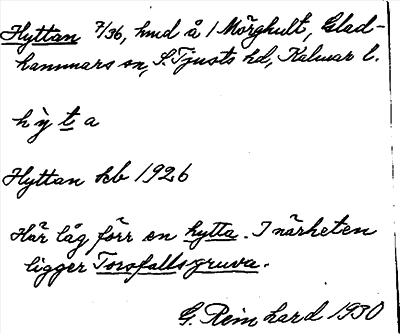 Hyttan 7/36, hmd å 1 Mörghult, Glad-
hammars sn, S. Tjusts hd, Kalmar l.
hỳta
Hyttan kb 1926
Här låg förr en hytta. I närheten
ligger Torsfallsgruva.
G. Reinhard 1930